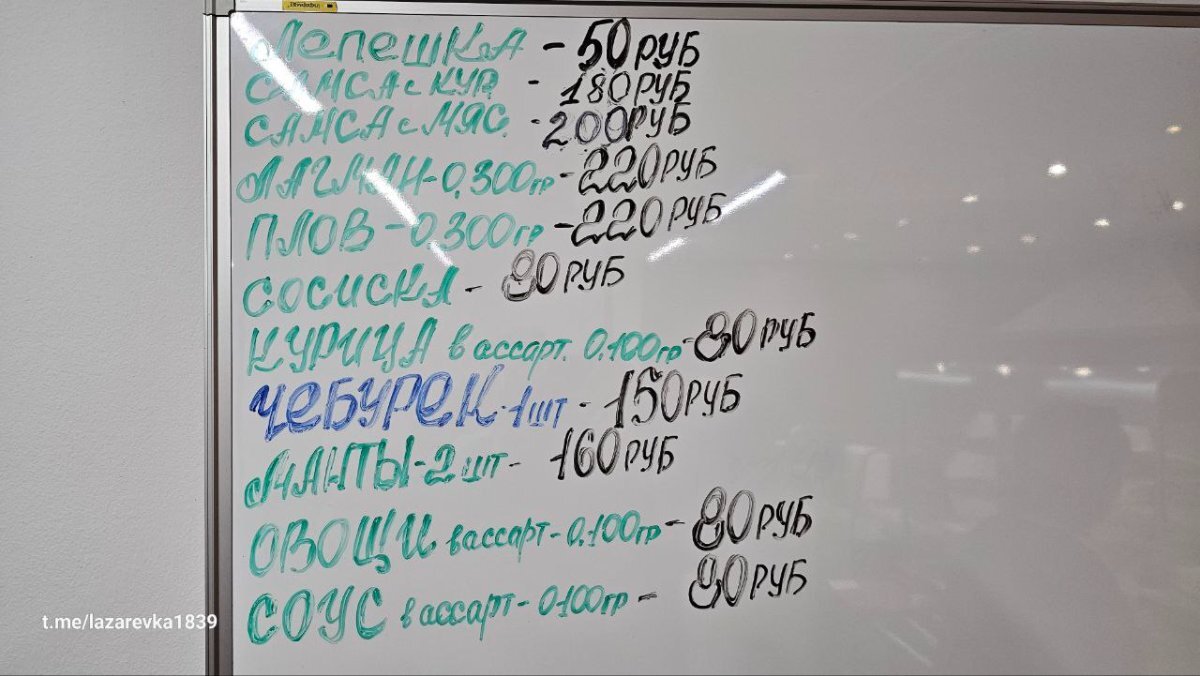 Лепешка - 50 РУБ
САМСА с КУР. - 180 РУБ
САМСА с МЯС. - 200 РУБ
ЛАГМАН - 0,300гр - 220 РУБ
ПЛОВ - 0.300гр - 220 РУБ
СОСИСКА - 80 РУБ
КУРИЦА в ассарт. 0,100гр - 80 РУБ
ЧЕБУРЕК - 1 шт - 150 РУБ
МАНТЫ - 2 шт - 160 РУБ
ОВОЩИ в ассарт - 0,100гр - 80 РУБ
СОУС в ассарт - 0100гр - 80 РУБ
t.me/lazarevka1839